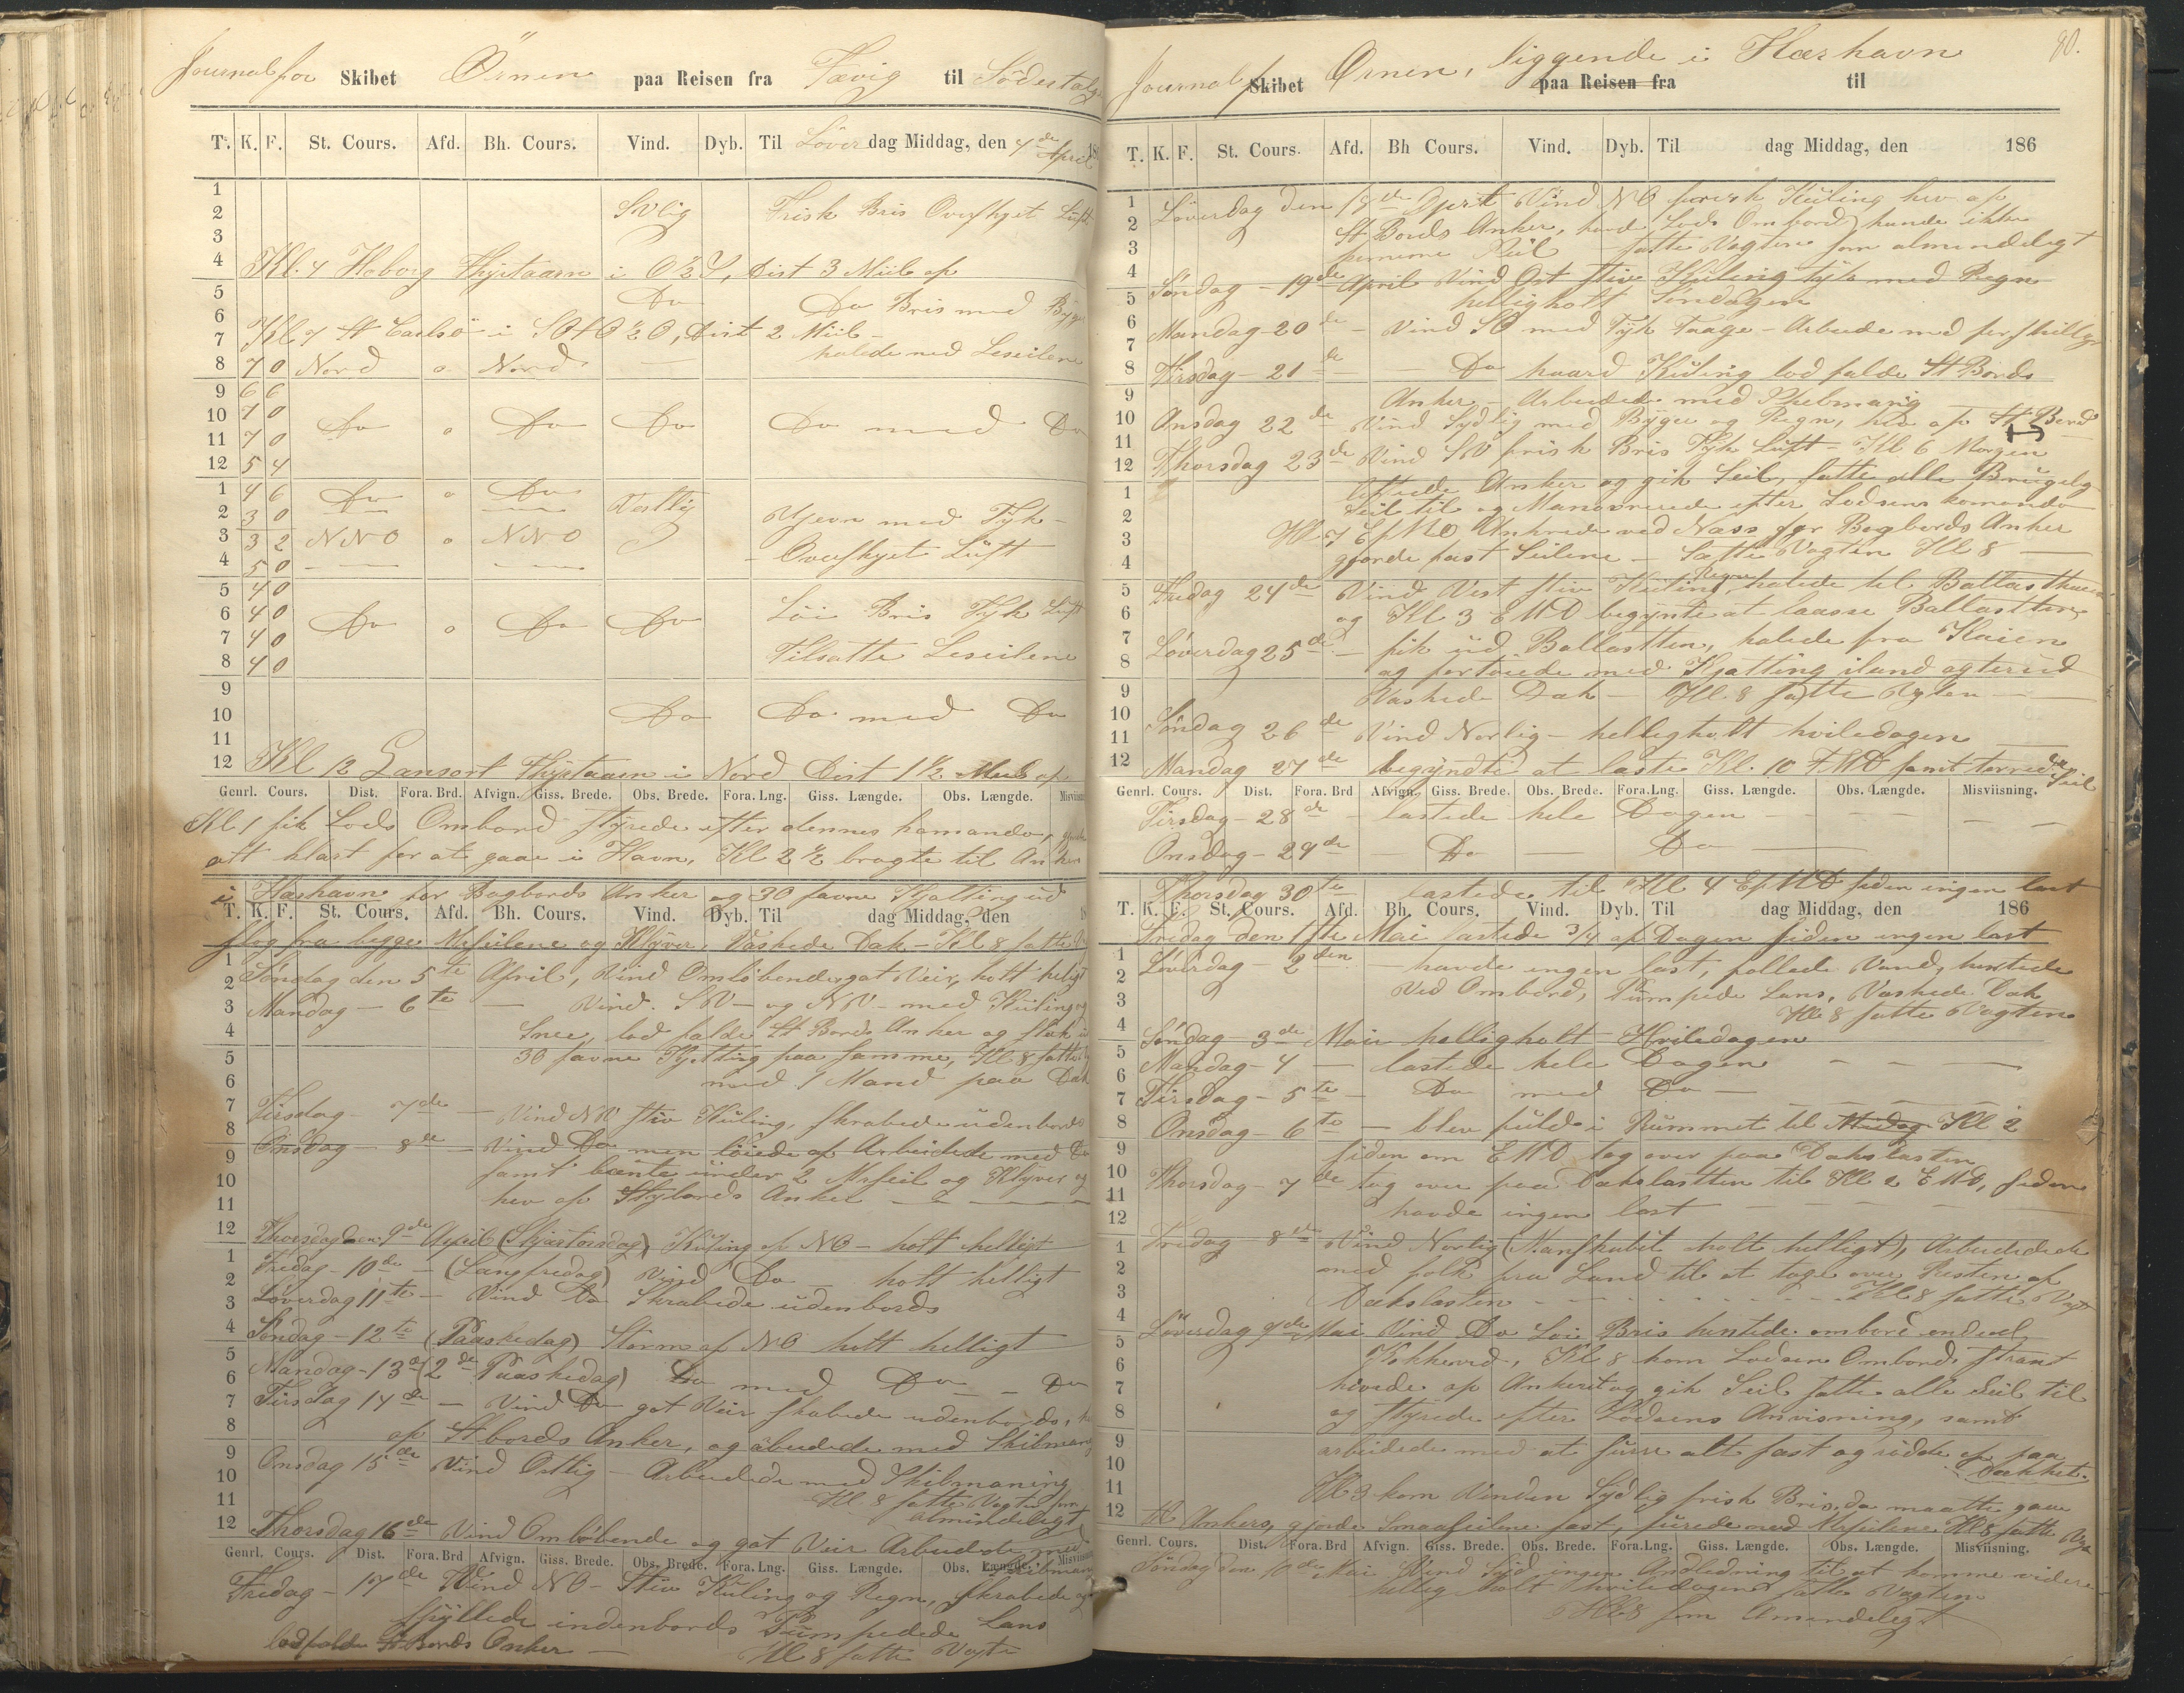 Journal for Skibet Örnen paa Reisen fra Fævig til Södertelge
T. K. F. St. Cours. Afd. Bh. Cours. Vind. Dyb. Til Löver dag Middag, den 4de April 18
1
2 SVlig Frisk Bris Overskyet Luft
3
4 Kl. 4 Hoborg Fyrtaarn i O½S, Dist 3 Miil af
5 Do Do Bris med Byger
6
7 Kl 7 St Carlsö i SOtO½O, Dist 2 Miil
halede ned Leseilene
8 7 0 Nord o Nord
9 6 6
10 7 0 Do o Do Do Do med Do
11 7 0
12 5 4
1 4 6 Do o Do Vestlig
2 3 0 Ujevn med Tyk
3 3 2 NNO o NNO
4 5 0 Overskyet Luft
5 4 0
6 4 0 Do o Do Do Löi Bris Tyk Luft
7 4 0
8 4 0 Tilsatte Leseilene
9
10 Do Do med Do
11
12 Kl 12 Lansort Fyrtaarn i Nord Dist 1½ Miil af
Genrl. Cours. Dist. Fora. Brd. Afvign. Giss. Brede. Obs. Brede. Fora. Lng. Giss. Længde. Obs. Længde.
Kl 1 fik Lods Ombord styrede efter dennes komando,
alt klart for at gaae i Havn, Kl 2½ bragte til Anker
i Hæshavn for Bagbords Anker og 30 favne Kjætting ud
T. K. F. St. Cours. Afd. Bh. Cours. Vind. Dyb. Til dag Middag, den
slog fra begge Mrseilene og Klyver, Vaskede Dæk - Kl 8 satte
1
2 Söndag den 5te April, Vind Omlöbende, got Veir, holt heligt
3 Mandag - 6te - Vind SV - og NV - med Kuling og
4 Snee, lod falde St Bords Anker og stak ud
5 30 favne Kjetting paa samme, Kl 8 satte
6 med 1 Mand paa Dæk
7 Tirsdag - 7de - Vind NV stiv Kuling, skrabede udenbords
8 Onsdag - 8de - Vind Do men löiede af Arbeidede med
9
10 samt under 2 Mrseil og Klyver og
11 hev op Styrbords Anker
12 Thorsdag den 9de April (Skjærtorsdag) Kuling af NO - holt helligt
1 Fredag - 10de - (Langfredag) Vind Do - holt helligt
2
3 Löverdag 11te - Vind Do Skrabede udenbords
4 Söndag - 12te (Paaskedag) Storm af NO holt helligt
5
6 Mandag - 13de (2de Paaskedag) Do med Do - Do
7 Tirsdag 14de - Vind Do got Veir skabede udenbords,
8 op St bords Anker, og abeidede med Skibmaning
9 Onsdag 15de Vind Ostlig - Arbeidede med Skibmaning
10 Kl. 8 satte Vagten som
11 almindeligt
12 Thorsdag 16de Vind Omlöbende og got Veir Arbeidede med
Genrl. Cours. Dist. Fora. Brd Afvign. Giss. Brede. Obs. Brede. Fora. Lng. Giss. Længde. Obs. Længde.
Fredag - 17de Vind NO - Stiv Kuling og Regn, skrabede og
skyllede indenbords Pumpedede Lans
lod falde St Bords Anker - Kl 8 satte Vagte
90.
Journal f Skibet Ornen, liggende i Hæshavn paa Reisen fra til
T. K. F. St. Cours. Afd. Bh Cours. Vind. Dyb. Til dag Middag, den 186
1 Löverdag den 18de April Vind NO frisk Kuling hev op
2 St Bords Anker, Lods Ombord, kunde ikke
3 satte Vagten som almindeligt
4 Söndag - 19de April Vind Ost stiv Kuling tyk med Regn
5 helligholt Söndagen
6 Mandag - 20de - Vind SO med Tyk Taage - Arbeide med forskilligt
7
8 Tirsdag - 21de - Do haard Kuling lod falde St Bords
9 Anker - Arbeidede med Skibmaning
10 Onsdag 22de Vind Sydlig med Byger og Regn, hev op St Bord
11
12 Thorsdag 23de Vind SV frisk Bris Tyk Luft - Kl 6 Morgen
1 lettede Anker og gik Seil, satte alle Brugelig
2 Seil til og Manövrerede efter Lodsens komando
3 Kl 7 EfMD Ankrede ved Næss for Bagbords Anker
4 gjorde fast Seilene - Satte Vagten Kl 8
5 Fredag 24de Vind Vest stiv Kuling Regn, halede til Ballastkaien
6 og Kl 3 EMD begynte at laasse Ballastten
7 Löverdag 25de - fik ud Ballastten, halede fra Kaien
8 og fortöiede med Kjætting iland agterud
9 Vaskede Dæk - Kl. 8 satte Vagten
10 Söndag 26de Vind Norlig - helligholt hviledagen
11
12 Mandag 27de begyndte at laste Kl. 10 FMD samt törrede Seil
Genrl. Cours. Dist. Fora. Brd Afvign. Giss. Brede. Obs. Brede. Fora. Lng. Giss. Længde. Obs. Længde. Misviisning.
Tirsdag - 28de - lastede hele Dagen
Onsdag - 29de - Do - Do
Thorsdag 30te lastede til Kl 4 EfMD siden ingen last
T. K. F. St. Cours. Afd. Bh. Cours. Vind. Dyb. Til dag Middag, den 186
Fredag den 1ste Mai lastede 3/4 af Dagen siden ingen last
1 Löverdag - 2den - havde ingen last, fyllede Vand, hentede
2 Ved Ombord, Pumpede Lans, Vaskede Dæk
3 Kl 8 satte Vagten
4 Söndag 3de Mai helligholt Hviledagen
5 Mandag - 4 - lastede hele Dagen
6
7 Tirsdag - 5te - Do med Do
8 Onsdag - 6te - blev fuld i Rummet til Middag Kl 2
9 siden om EMD tog over paa Dækslasten
10 Thorsdag - 7de tog over paa Dækslastten til Kl 2 EMD, siden
11 havde ingen last
12
1 Fredag 8de Vind Norlig (Manskabet holt helligt), Arbeidede
2 med folk fra Land til at tage over Resten af
3 Dækslasten - Kl 8 satte Vagt
4 Löverdag 9de Mai Vind Do Löi Bris hentede ombord endeel
5 Kokkeved, Kl 8 kom Lodsen Ombord, strax
6 hivede op Ankeret og gik Seil satte alle Seil til
7
8 og styrede efter Lodsens Anvisning, samt
9 arbeidede med at surre alt fast og rödde op paa
10 Dækket.
11 Kl 3 kom Vinden Sydlig frisk Bris, da maatte gaae
12 til Ankers, gjorde Smaaseilene fast, med Mrseilene Kl 8 satte Vagt
Genrl. Cours. Dist. Fora. Brd Afvign. Giss. Brede. Obs. Brede. Fora. Lng. Giss. Længde. Obs. Længde. Misviisning.
Söndag den 10de Mai Vind Syd ingen Andledning til at komme videre
hellig holt hviledagen satte Vagten
Kl 8 som Almindeligt